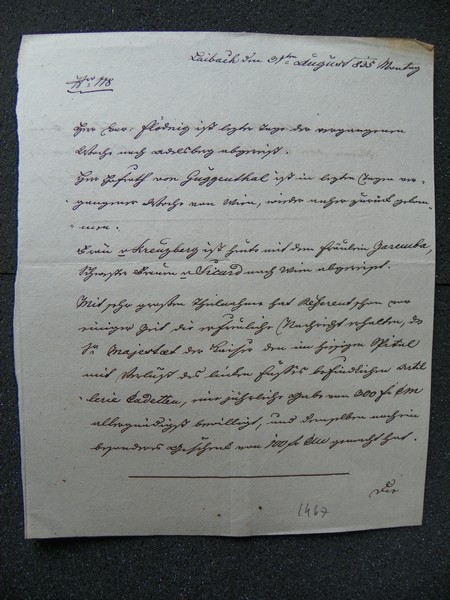 Laibach den 31ten August 835 Montag
Nro 118
Herr Bar: Flödnig ist letzte Tage der vergangenen
Woche nach Adelsberg abgereist.
Herr Hofrath von Guggenthal ist in letzten Tagen ver-
gangener Woche von Wien, wieder anher zurück gekom-
men.
Frau v Kreuzberg ist heute mit dem Fräulein Garemba,
Schwester Frauen v Sicard nach Wien abgereist.
Mit sehr großer Theilnahme hat Referent schon vor
einiger Zeit die erfreuliche Nachricht erhalten, daß
Se Majestaet der Kaiser dem im hiesigen Spital
mit Verlust des linken Fußes befindlichen Artil
lerie Cadetten, eine jährliche Gabe von 300 f CM
allergnädigst bewilligt, und demselben noch ein
besonderes Geschenk von 100 f CM gemacht hat.
Die
1467